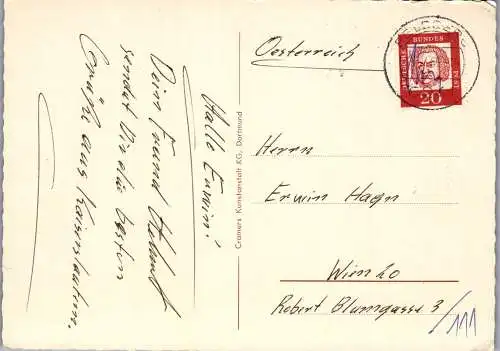 Hallo Erwin!
Dein Freund Helmut
sendet Dir die besten
Grüße aus Kaiserslautern.
Cramers Kunstanstalt KG, Dortmund
Oesterreich
DEUTSCHE BUNDESPOST
20
Herrn
Erwin Hagn
Wien 20
Robert Blumgasse 3
/111